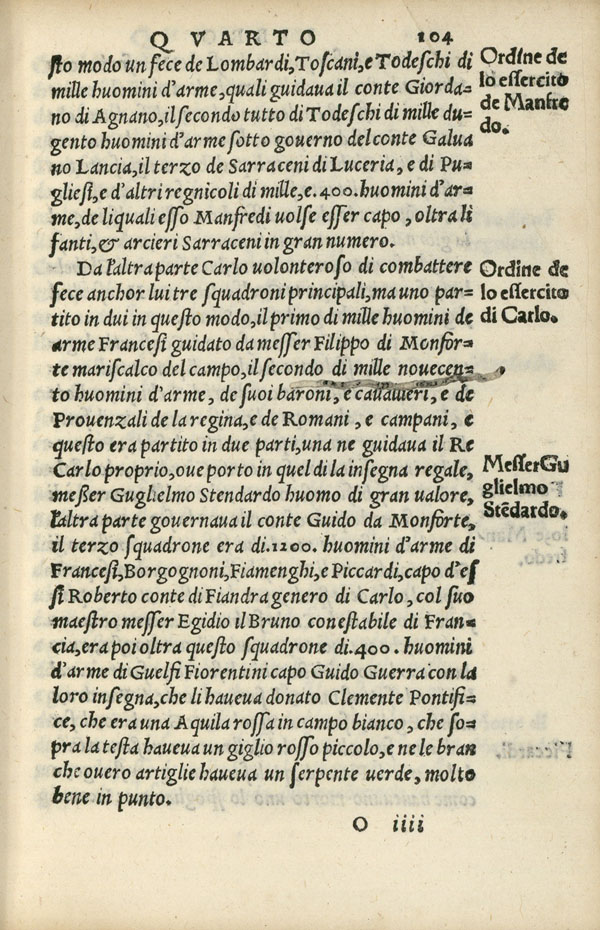 QVARTO 104
sto modo un fece de Lombardi, Toscani, e Todeschi di
mille huomini d'arme, quali guidaua il conte Giorda=
no di Agnano, il secondo tutto di Todeschi di mille du=
gento huomini d'arme sotto gouerno del conte Galua
no Lancia, il terzo de Sarraceni di Luceria, e di Pu=
gliesi, e d'altri regnicoli di mille, e .400. huomini d'ar=
me, de li quali esso Manfredi uolse esser capo, oltra li
fanti, & arcieri Sarraceni in gran numero.
Ordine de
lo essercito
de Manfre
do.
Da l'altra parte Carlo uolonteroso di combattere
fece anchor lui tre squadroni principali, ma uno par=
tito in dui in questo modo, il primo di mille huomini de
arme Francesi guidato da messer Filippo di Monfor=
te mariscalco del campo, il secondo di mille nouecen=
to huomini d'arme, de suoi baroni, e cauallieri, e de
Prouenzali de la regina, e de Romani, e campani, e
questo era partito in due parti, una ne guidaua il Re
Carlo proprio, oue porto in quel di la insegna regale,
meßer Guglielmo Stendardo huomo di gran ualore,
l'altra parte gouernaua il conte Guido da Monforte,
il terzo squadrone era di .1200. huomini d'arme di
Francesi, Borgognoni, Fiamenghi, e Piccardi, capo d'es
si Roberto conte di Fiandra genero di Carlo, col suo
maestro messer Egidio il Bruno conestabile di Fran=
cia, era poi oltra questo squadrone di .400. huomini
d'arme di Guelfi Fiorentini capo Guido Guerra con la
loro insegna, che li haueua donato Clemente Pontifi=
ce, che era una Aquila rossa in campo bianco, che so=
pra la testa haueua un giglio rosso piccolo, e ne le bran
che ouero artiglie haueua un serpente uerde, molto
bene in punto.
Ordine de
lo essercito
di Carlo.
Messer Gu
glielmo
Stēdardo.
O iiii